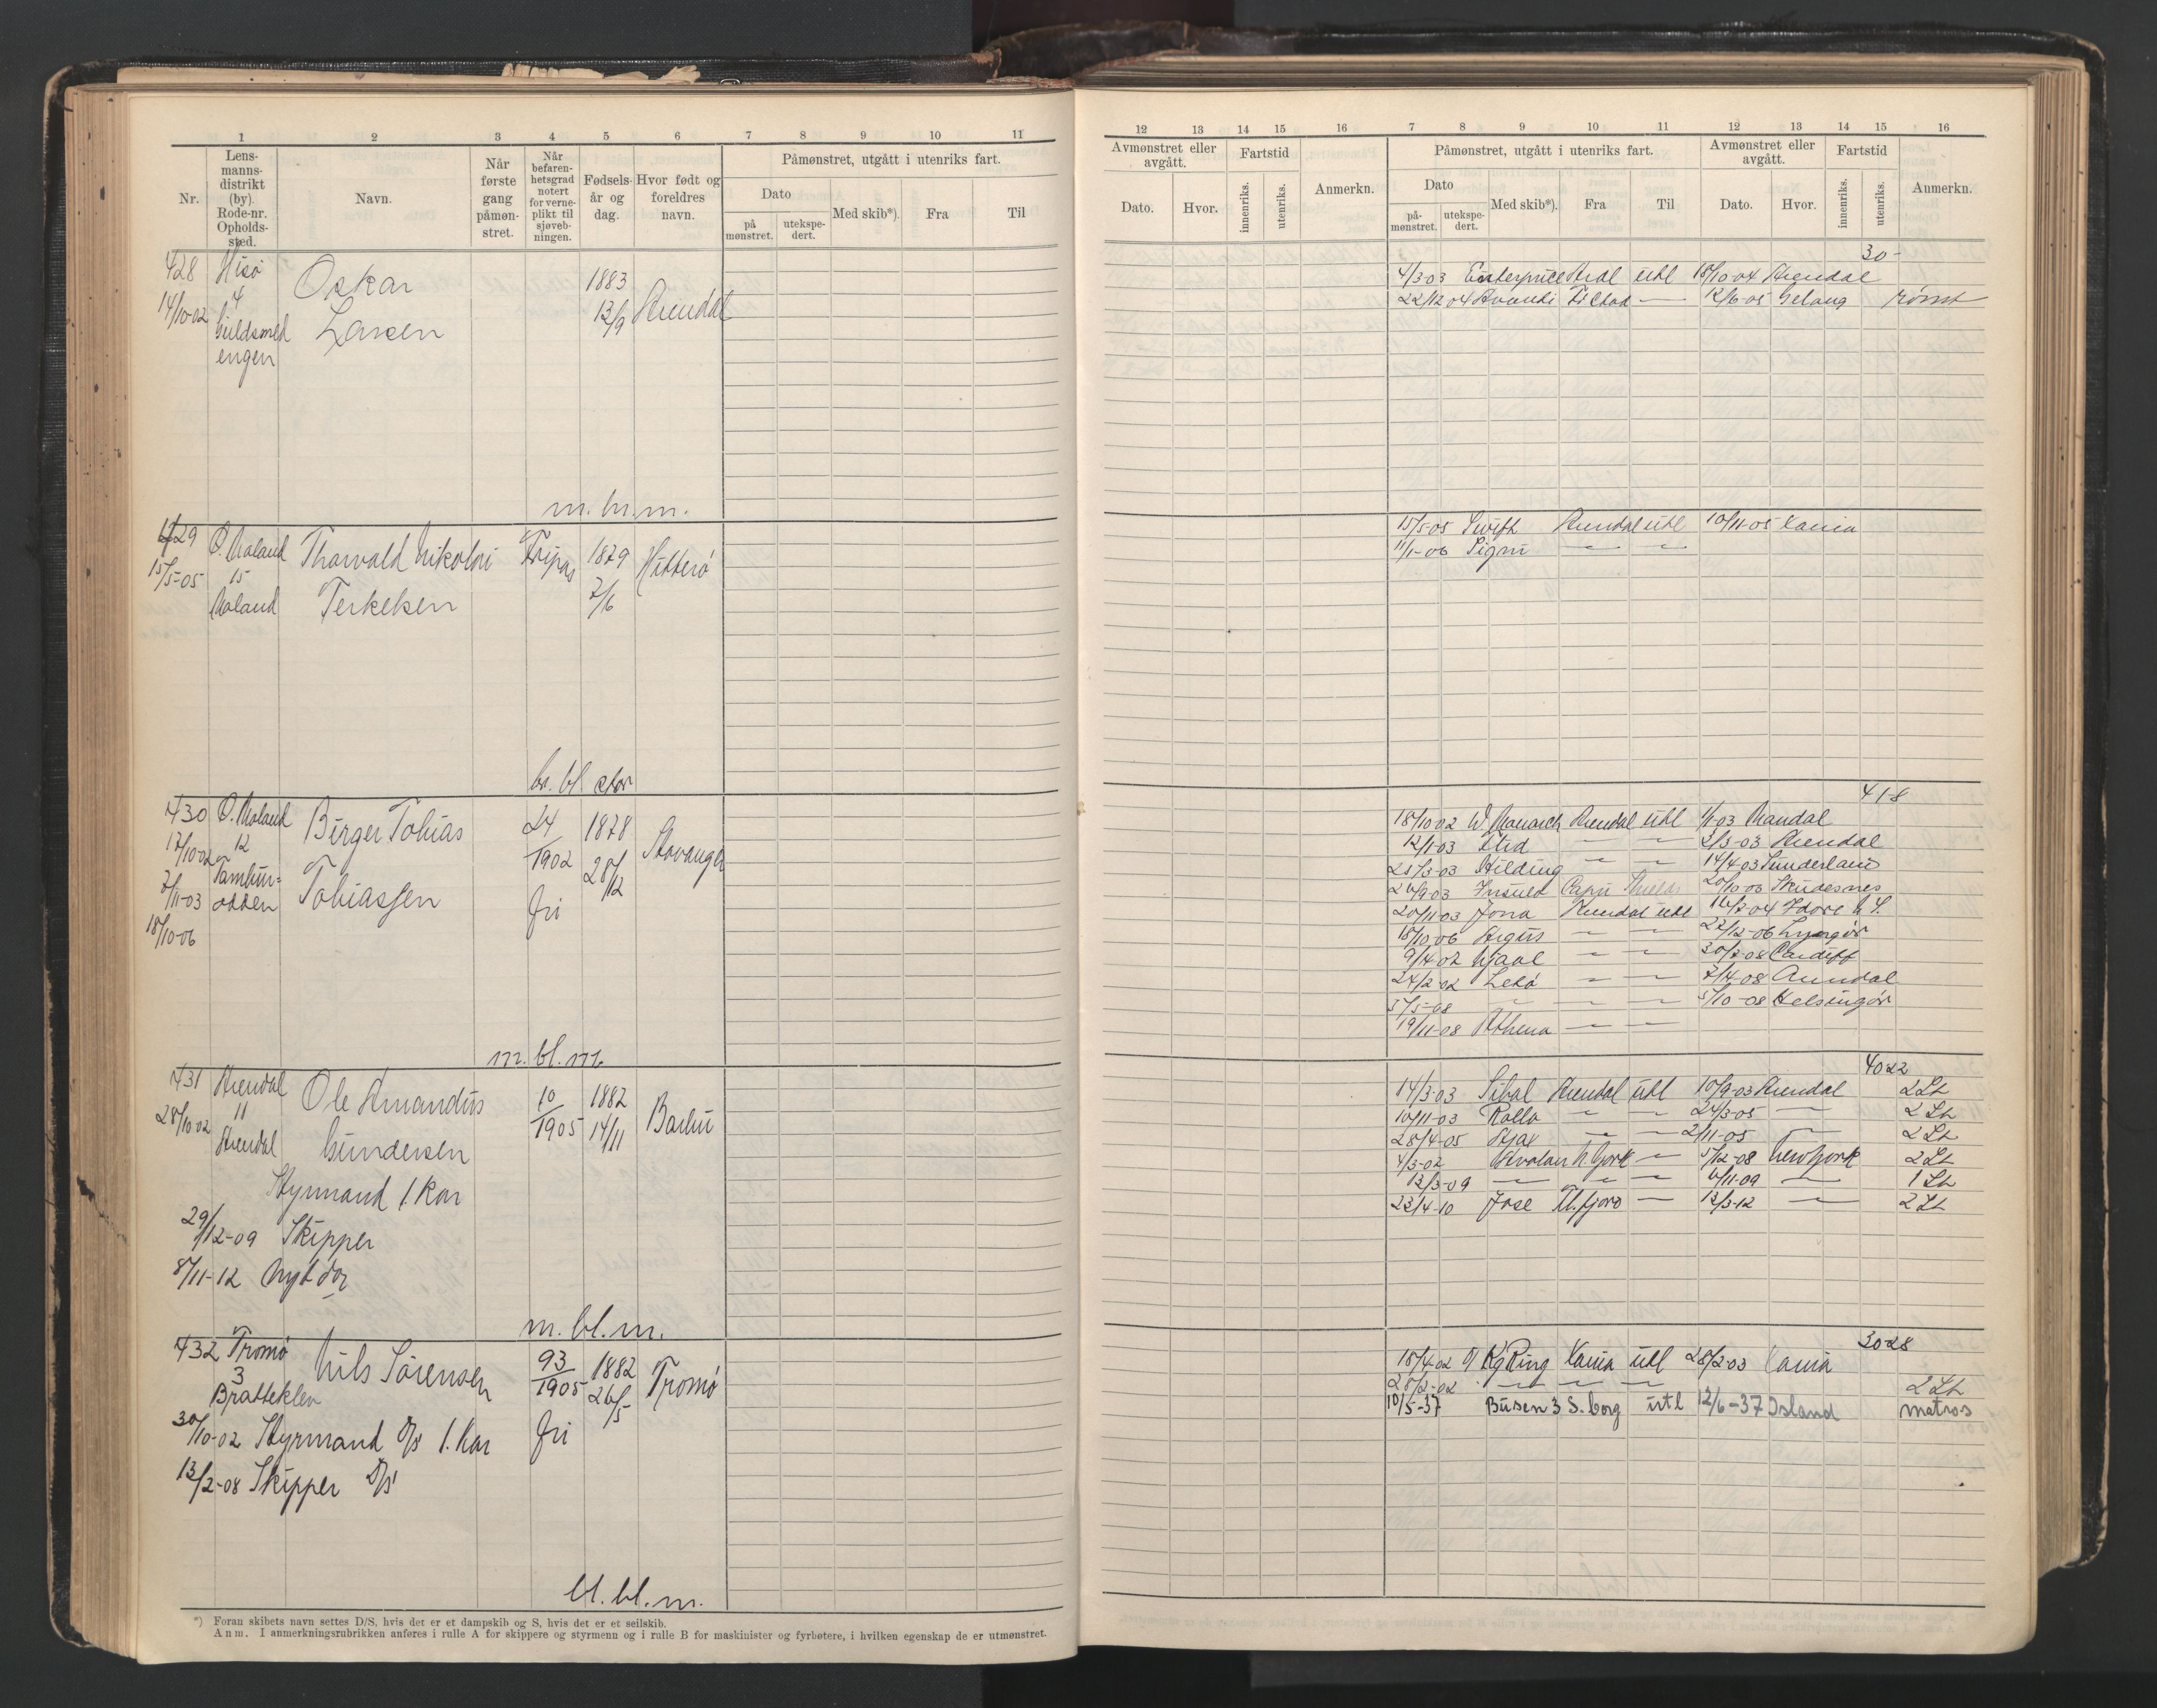 1 2 3 4 5 6 7 8 9 10 11
Nr.
Lens-
manns-
distrikt
(by).
Rode-nr.
Opholds-
sted.
Navn.
Når
første
gang
påmøn-
stret.
Når
befaren-
hetsgrad
notert
for verne-
plikt til
sjøveb-
ningen.
Fødsels-
år og
dag.
Hvor født og
foreldres
navn.
Påmønstret, utgått i utenriks fart.
Dato
på
mønstret.
utekspe-
dert.
Med skib*).
Fra
Til
428 Hisö Oskar 1883
14/10-02 4 Larsen 13/9 Arendal
Guldsmed
engen
m. br. m.
429 Ö. Moland Thorvald Nikolai Fripas 1879 Hitterö
15/5-05 15
Moland Terkelsen 7/6
br. bl. stor
430 Ö. Moland Birger Tobias 24 1878 Stavanger
17/10-02 12 1902 28/12
7/11-03 odden Tobiassen fri
18/10-06
m. bl. m.
431 Arendal Ole Amandus 10 1882 Barbu
28/10-02 11 1905 14/11
Arendal Gundersen
Styrmand 1. Kar
29/12-09 Skipper
8/11-12
m. bl. m.
432 Tromö Nils Sörensen 93 1882 Tromö
3 1905 26/5
Bratteklev
30/10-02 Styrmand D/S 1. Kar fri
13/2-08 Skipper D/S
bl. bl. m.
*) Foran skibets navn settes D/S, hvis det er et dampskib og S, hvis det er et seilskib.
Anm. I anmerkningsrubrikken anføres i rulle A for skippere og styrmenn og i rulle B for maskinister og fyrbøtere, i hvilken egenskap de er utmønstret.
12 13 14 15 16 7 8 9 10 11 12 13 14 15 16
Avmønstret eller
avgått.
Dato.
Hvor.
Fartstid
innenriks.
utenriks.
Anmerkn.
Påmønstret, utgått i utenriks fart.
Dato
på-
mønstret.
utekspe-
dert.
Med skib*).
Fra
Til
Avmønstret eller
avgått.
Dato.
Hvor.
Fartstid
innenriks.
utenriks.
Anmerkn.
30-
4/3-03 Enterprice Ardal utl 18/10-04 Arendal
22/12 04 Avanti — 12/6-05 rømt
15/5-05 Swift Arendal utl 10/11-05 Xania
11/1-06 Signi — —
41-8
18/10 02 W. Monarch Arendal utl 1/1-03 Mandal
12/1-03 — — 2/3-03 Arendal
25/3-03 Hilding — — 14/4-03 Sunderland
26/9-03 Shields 20/10-03 Skudesnes
20/11-03 Jona Arendal utl 16/2-04
18/10 06 Argus — — 22/12-06 Lyngör
— — 30/2-08 Cardiff
— — 7/4-08 Arendal
5/5-08 — — — 5/10-08 Helsingör
19/11-08 Athena — —
40 22
14/3-03 Arendal utl 10/9-03 Arendal 2 St
10/11-03 Rollo — — 24/3-05 — 2 St
28/4-05 Ajax — — 2/11-05 — 2 St
4/3-02 N. York — 5/12-08 New York 2 St
12/3-09 — — — 6/11-09 — 1 St
22/4-10 — 12/3-12 — 2 St
30-28
18/4-02 Kg Ring Xania utl 28/2-03 Xania
28/2-02 — — — 2 St
10/5-37 Busen 3 S. borg utl 12/6-37 Island matros